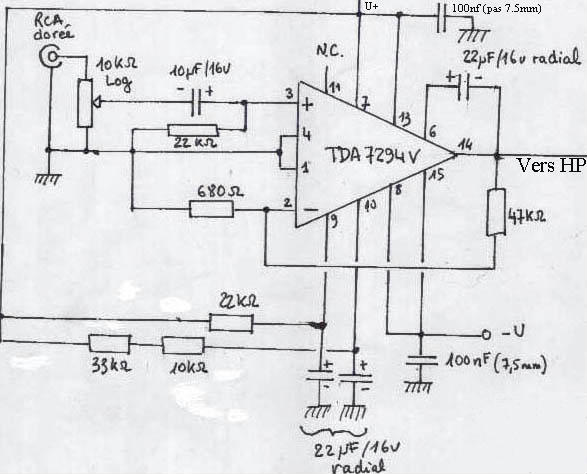 U+
100nf (pas 7.5mm)
RCA
dorée
10KΩ
Log
10µF/16V
- +
N.C.
11
7
13
22µF/16V radial
+ -
3
+
6
4
TDA 7294V
14
22KΩ
1
15
Vers HP
680Ω
2
-
9
10
8
47KΩ
22KΩ
-U
33KΩ
10KΩ
100nF (7,5mm)
+
-
+
-
22µF/16V
radial